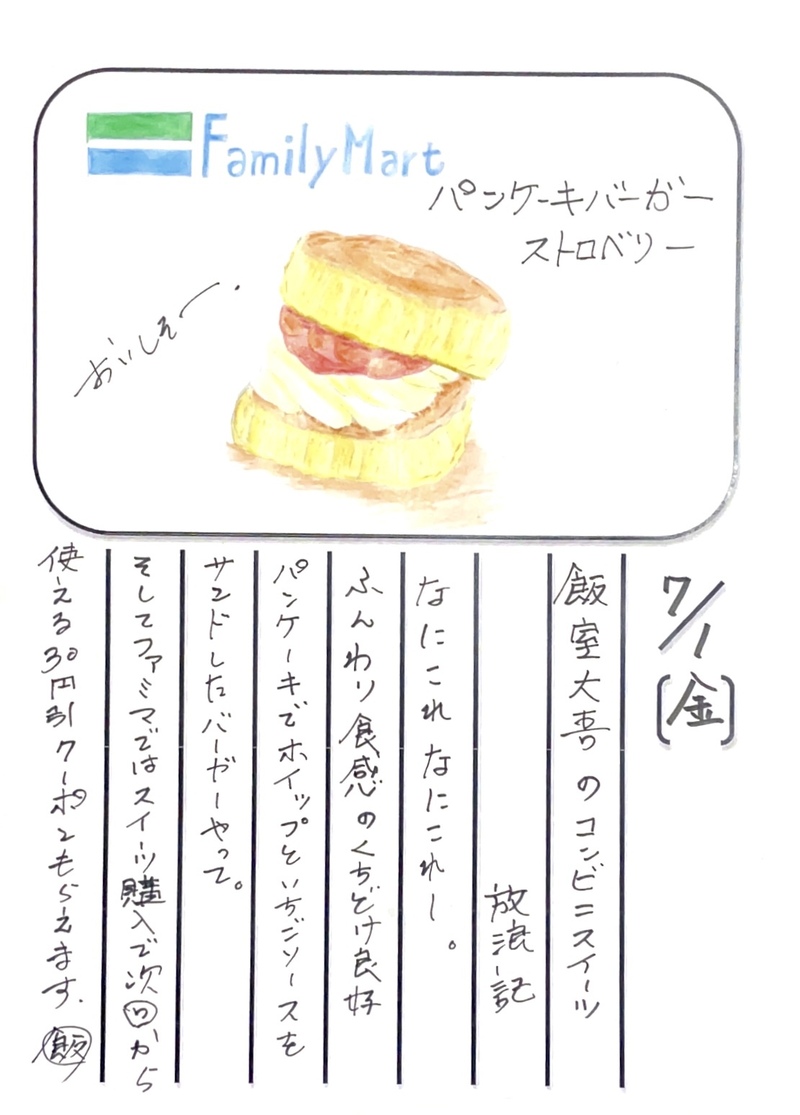 FamilyMart
パンケーキバーガー
ストロベリー
おいしそー。
7/1
[金]
飯室大吾のコンビニスイーツ
放浪記
なにこれなにこれー。
ふんわり食感のくちどけ良好
パンケーキでホイップといちごソースを
サンドしたバーガーやって。
そしてファミマではスイーツ購入で次回から
使える30円引クーポンもらえます.
飯